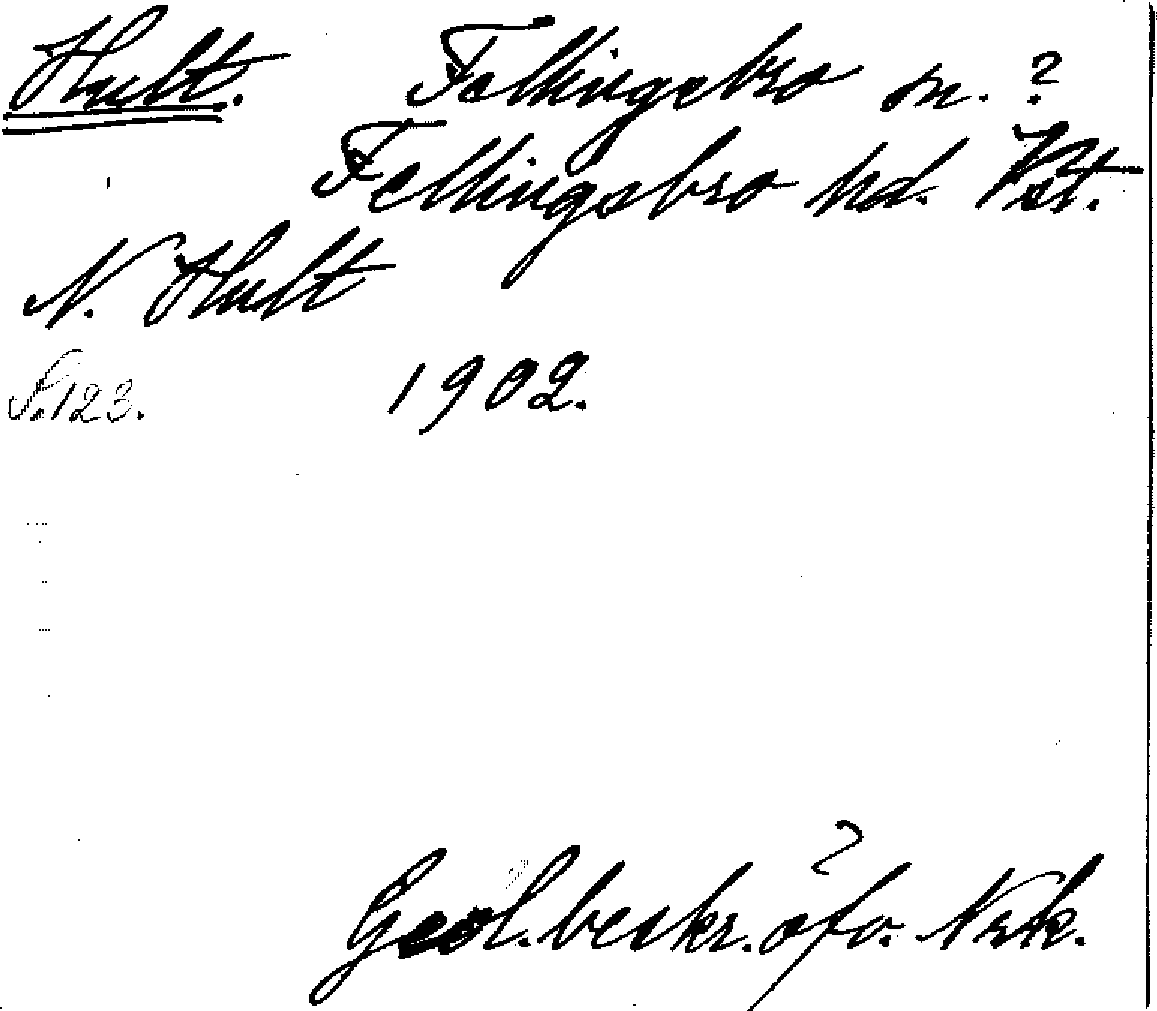 Hult. Fellingsbro sn. ?
Fellingsbro hd. Vst.
N. Hult
S. 123. 1902.
Geol. beskr. öfv. Nrk.